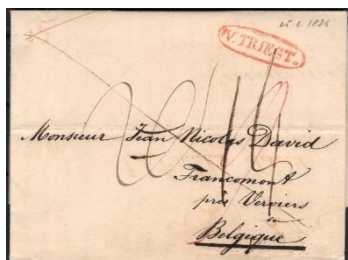 V. TRIEST.
Monsieur Jean Nicolas David
Francomont
près Verviers
en
Belgique